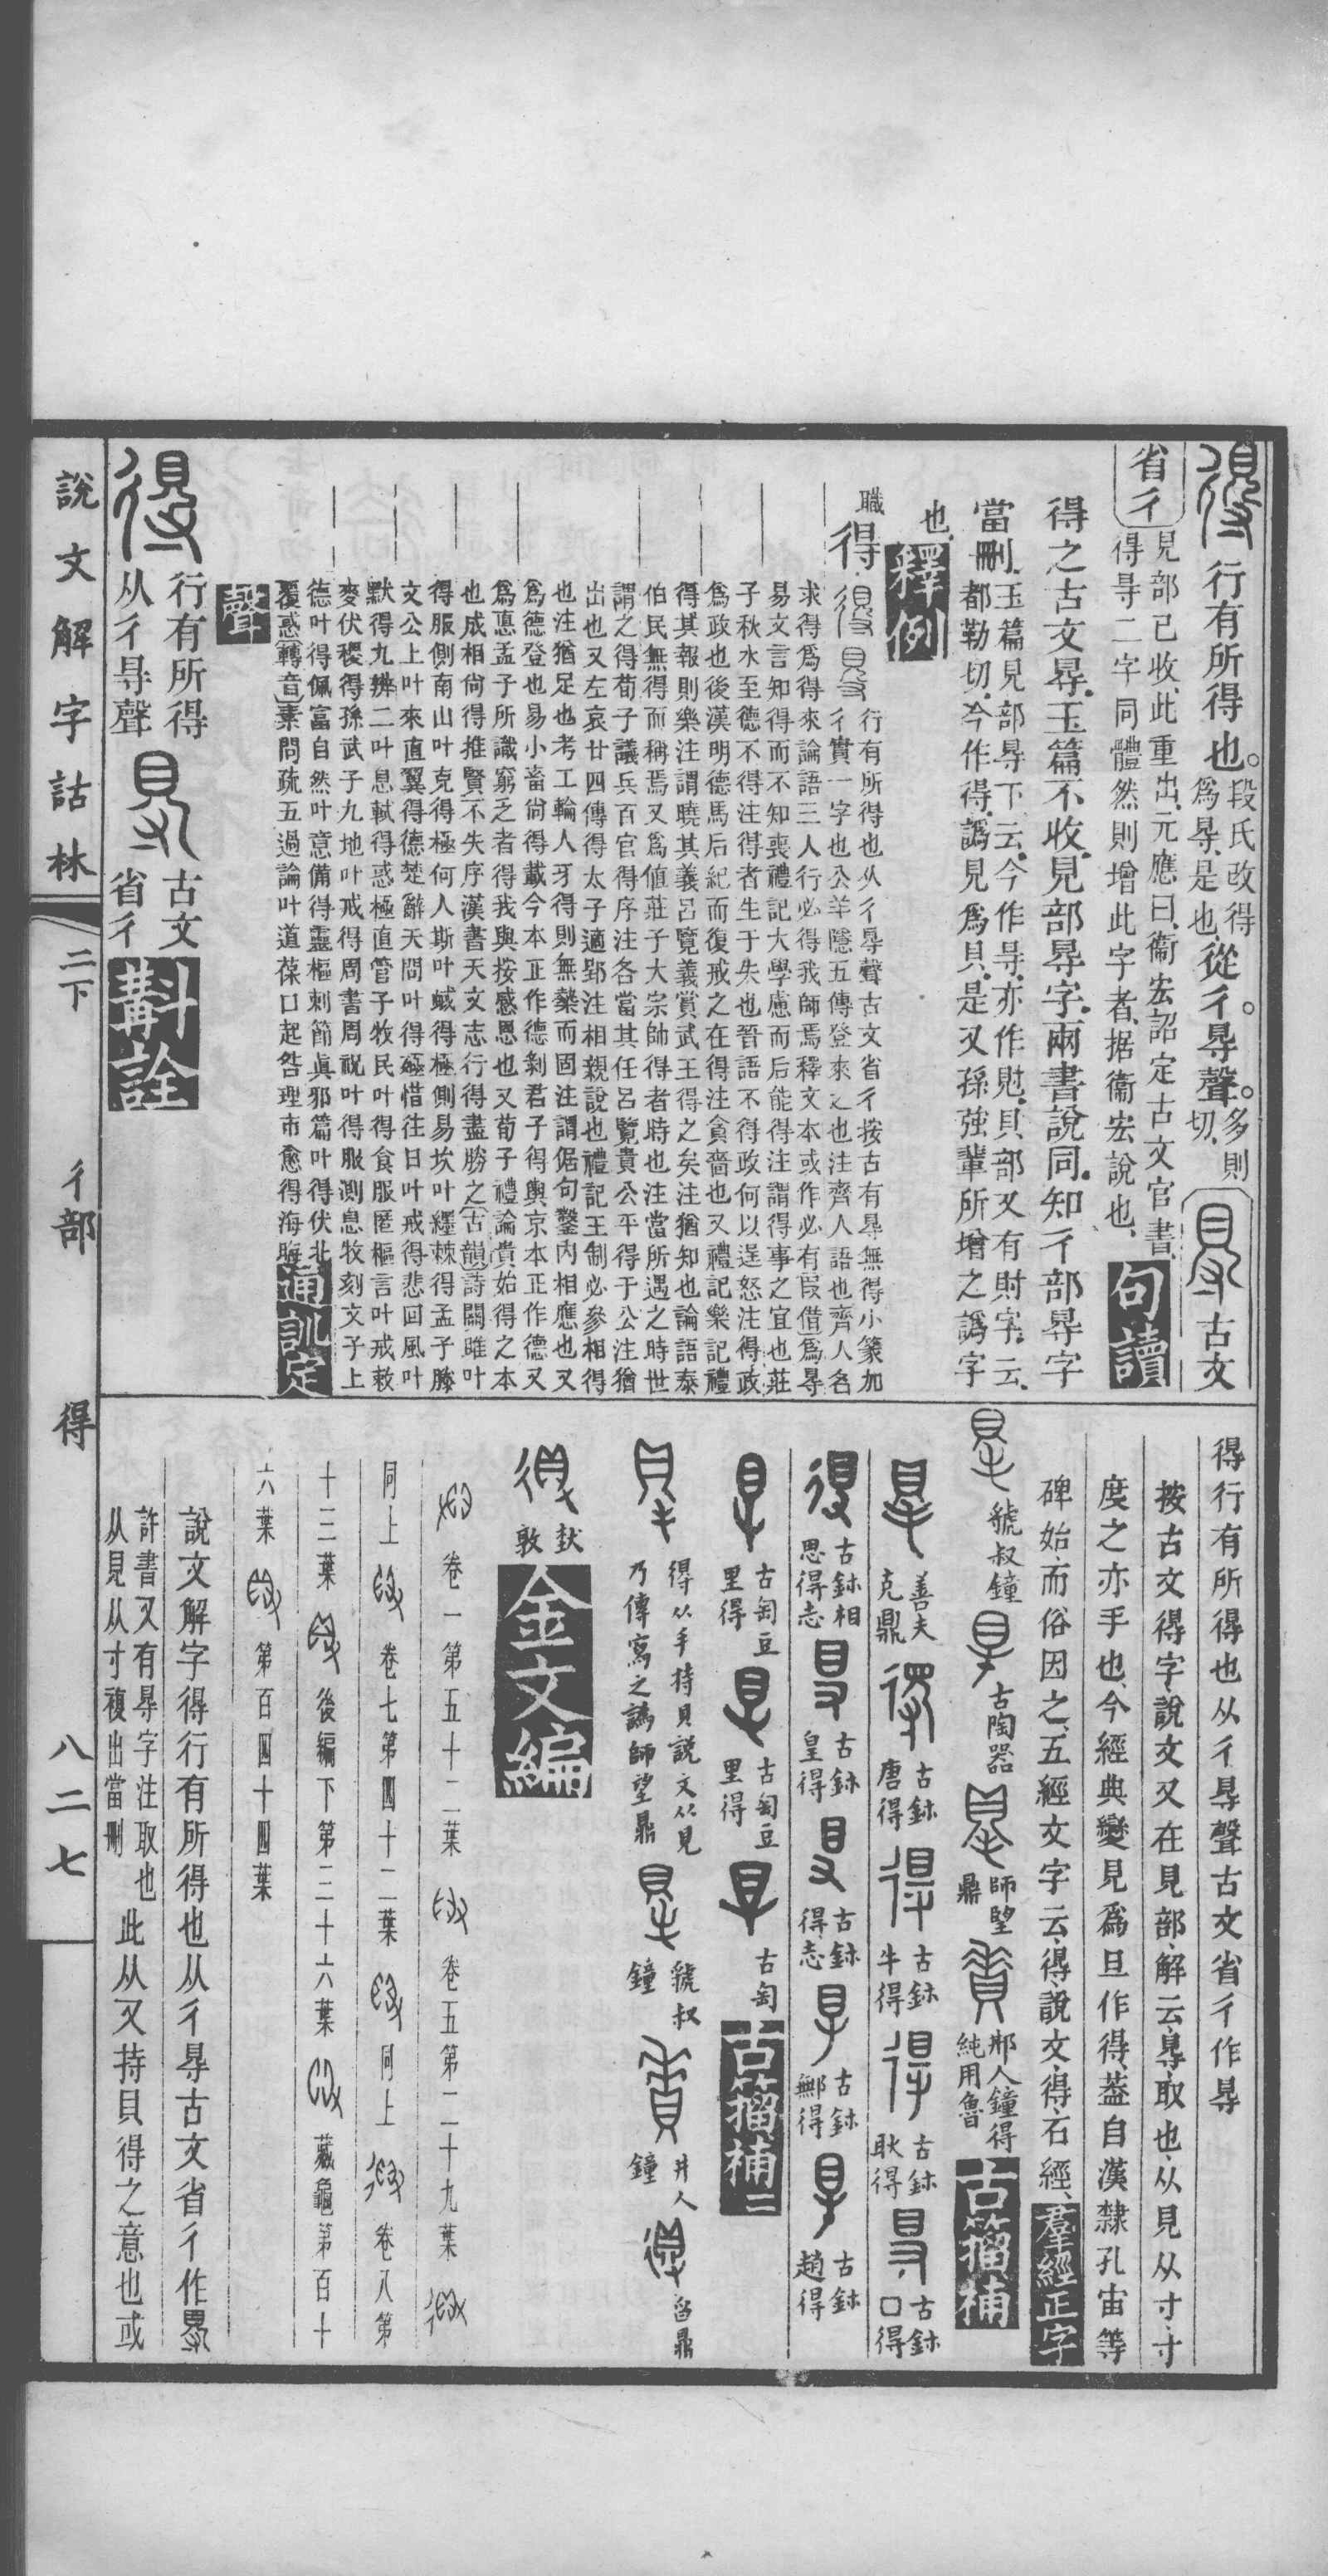 行有所得也
段氏改得
爲㝵是也
從彳㝵聲
多則
切
古文
省彳
見部已收此重出元應曰衞宏詔定古文官書
得㝵二字同體然則增此字者据衞宏說也
句讀
得之古文㝵玉篇不收見部㝵字兩書說同知彳部㝵字
當刪
玉篇見部㝵下云今作㝵亦作䙷貝部又有䝰字云
都勒切今作得譌見爲貝是又孫強輩所增之譌字
也
釋例
職
得
行有所得也从彳㝵聲古文省彳按古有㝵無得小篆加
彳實一字也公羊隱五傳登來之也注齊人語也齊人名
求得爲得來論語三人行必得我師焉釋文本或作必有叚借爲㝵
易文言知得而不知喪禮記大學慮而后能得注謂得事之宜也莊
子秋水至德不得注得者生于失也晉語不得政何以逞怒注得政
爲政也後漢明德馬后紀而復戒之在得注貪嗇也又禮記樂記禮
得其報則樂注謂曉其義呂覽義賞武王得之矣注猶知也論語泰
伯民無得而稱焉又爲値莊子大宗師得者時也注當所遇之時世
謂之得荀子議兵百官得序注各當其任呂覽貴公平得于公注猶
出也又左哀廿四傳得太子適郢注相親說也禮記王制必參相得
也注猶足也考工輪人牙得則無槷而固注謂倨句鑿內相應也又
爲德登也易小畜尙得載今本正作德剝君子得輿京本正作德又
爲惪孟子所識窮乏者得我與按感恩也又荀子禮論貴始得之本
也成相尙得推賢不失序漢書天文志行得盡勝之古韻詩關雎叶
得服側南山叶克得極何人斯叶蜮得極側易坎叶纆棘得孟子滕
文公上叶來直翼得德楚辭天問叶得殛惜往日叶戒得悲回風叶
默得九辨二叶息軾得惑極直管子牧民叶得食服匿樞言叶戒敕
麥伏稷得孫武子九地叶戒得周書周祝叶得服測息牧刻文子上
德叶得佩富自然叶意備得靈樞刺節眞邪篇叶得伏北
覆惑轉音素問疏五過論叶道葆口起咎理市愈得海晦
通訓定
聲
行有所得
从彳㝵聲
古文
省彳
斠詮
得行有所得也从彳㝵聲古文省彳作㝵
按古文得字說文又在見部解云㝵取也从見从寸寸
度之亦手也今經典變見爲旦作得葢自漢隸孔宙等
碑始而俗因之五經文字云得說文得石經
羣經正字
虢叔鐘
古陶器
師望
鼎
邢人鐘得
純用魯
古籀補
善夫
克鼎
古鉢
唐得
古鉢
牛得
古鉢
耿得
古鉢
口得
古鉢相
思得志
古鉢
皇得
古鉢
得志
古鉢
鄦得
古鉢
趙得
古匋豆
里得
古匋豆
里得
古匋
古籀補二
得从手持貝說文从見
乃傳寫之譌師望鼎
虢叔
鐘
井人
鐘
曶鼎
㝬
敦
金文編
卷一第五十二葉
卷五第二十九葉
同上
卷七第四十二葉
同上
卷八第
十三葉
後編下第三十六葉
藏龜第百十
六葉
第百四十四葉
說文解字得行有所得也从彳㝵古文省彳作㝵
許書又有㝵字注取也
从見从寸複出當刪
此从又持貝得之意也或
說文解字詁林
二下
彳部
得
八二七